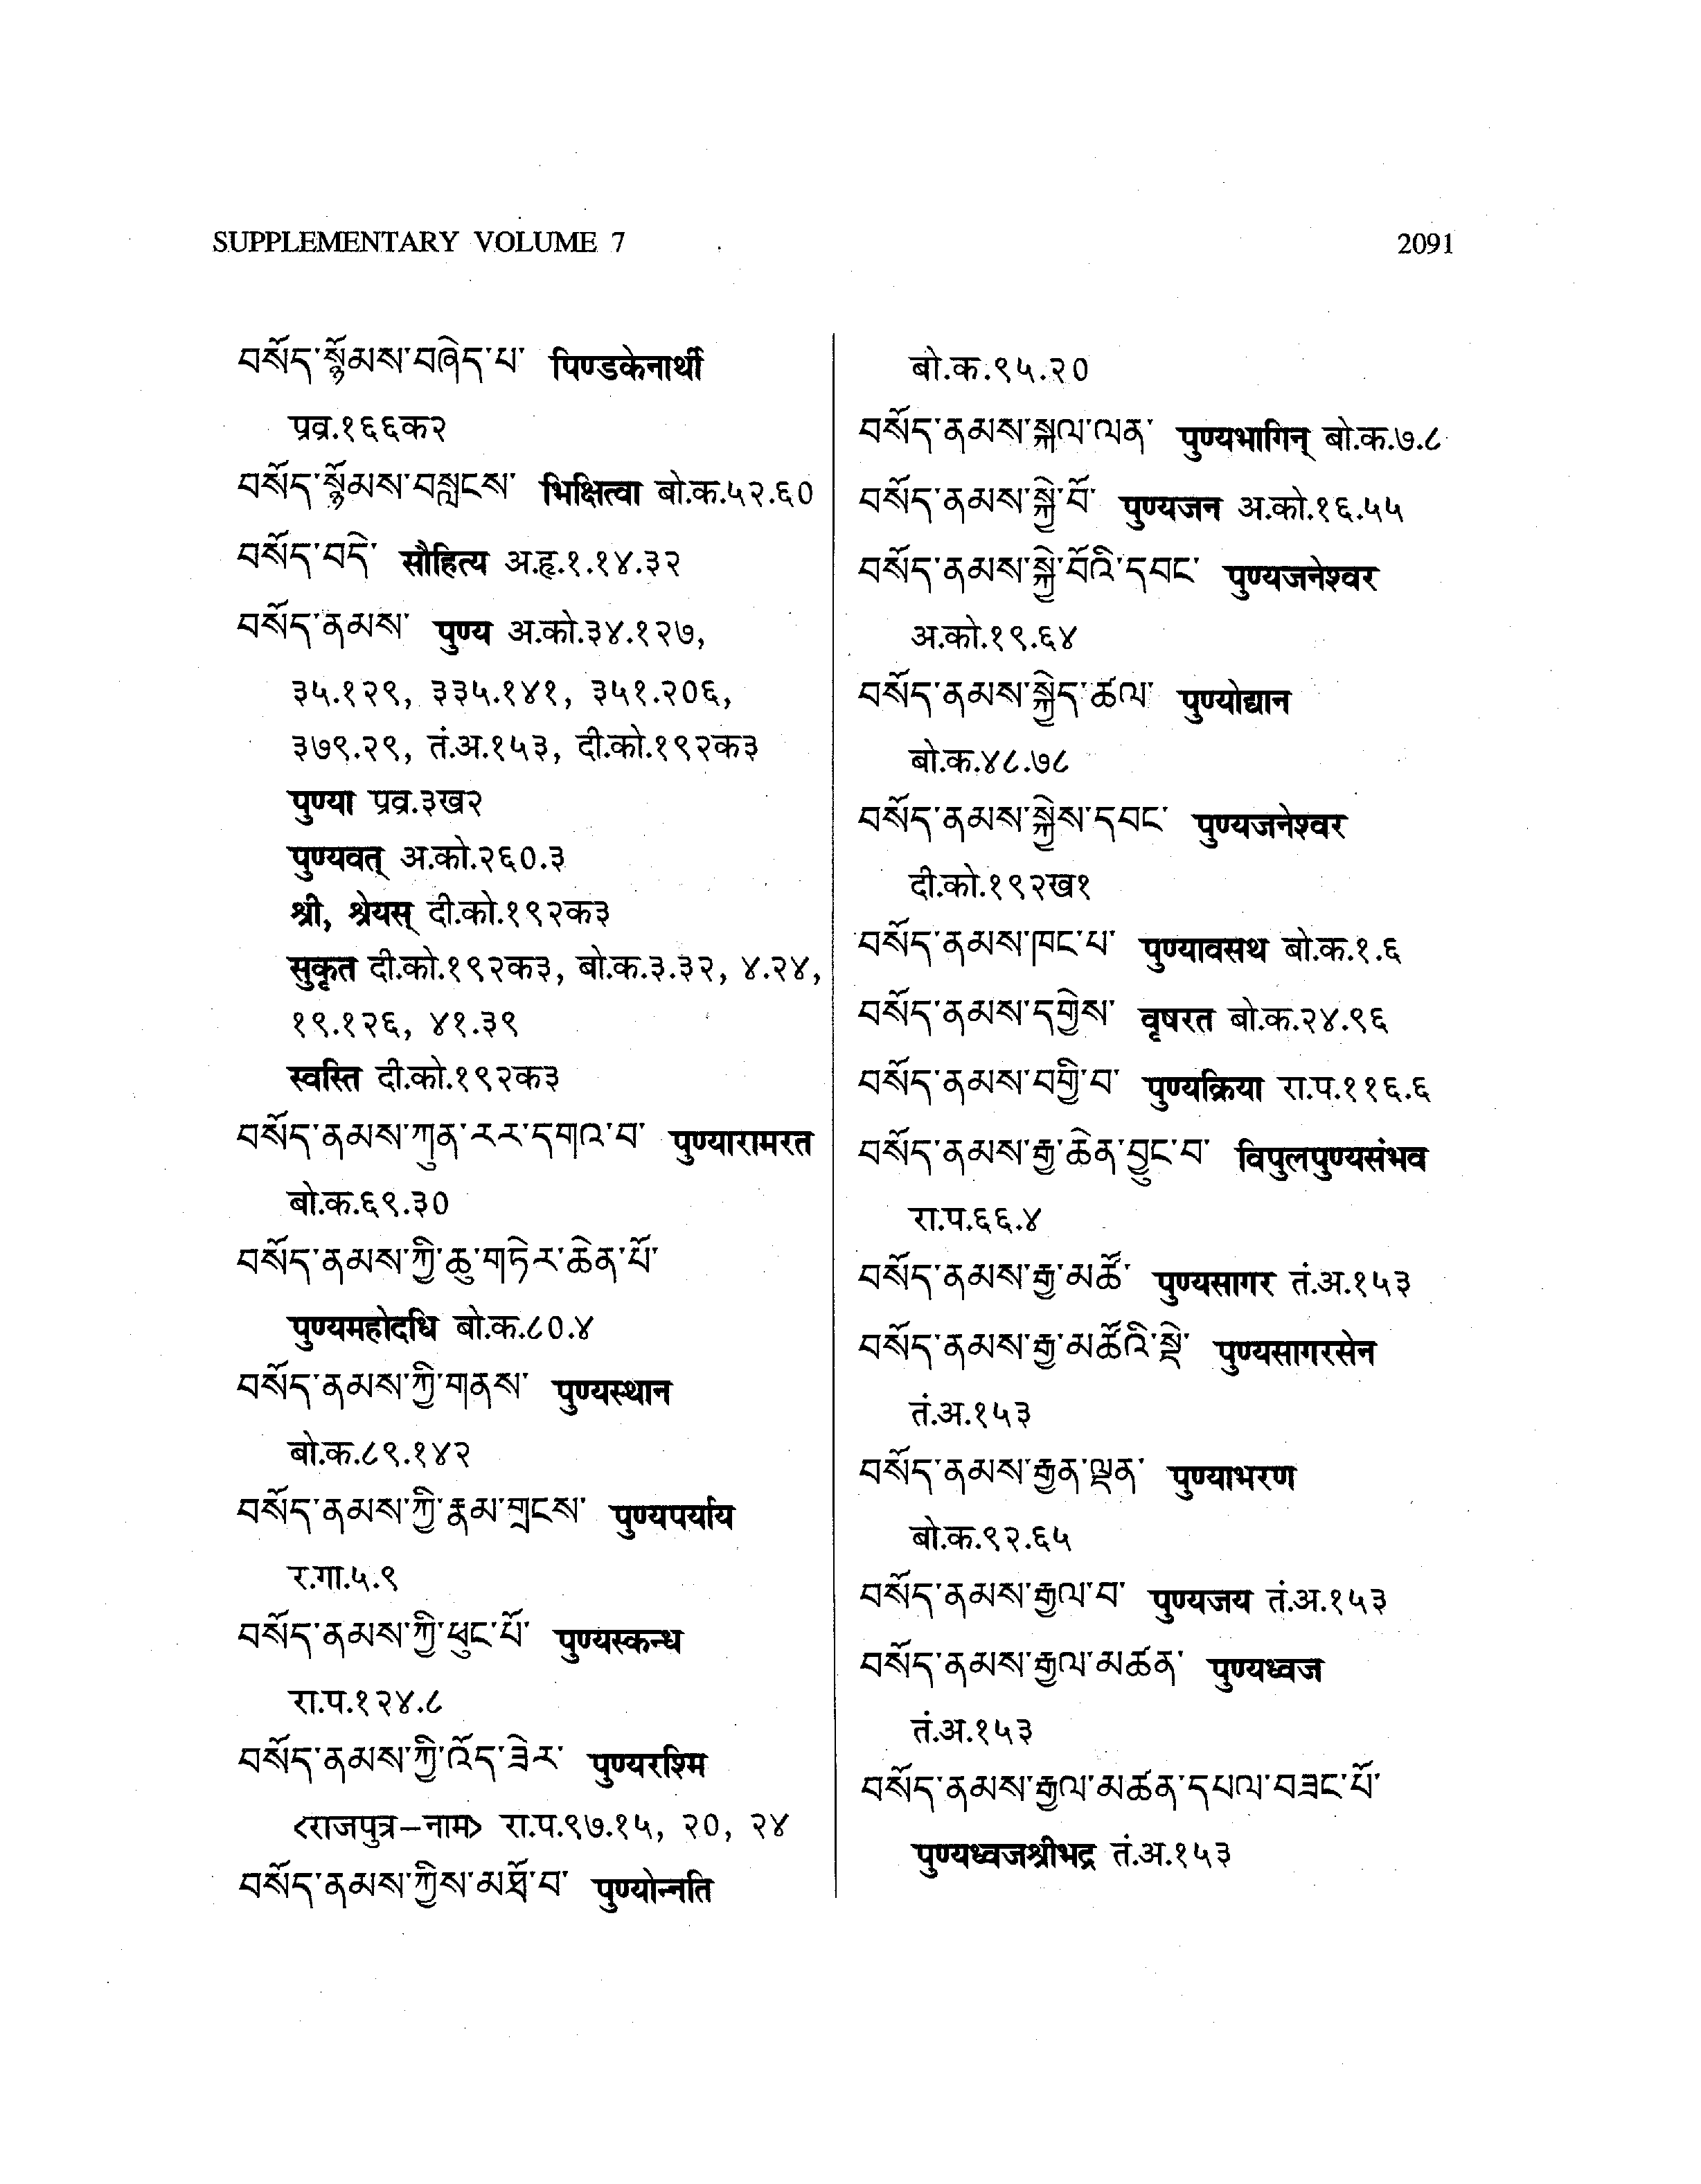 SUPPLEMENTARY VOLUME 7
2091
བསོད་སྙོམས་བཞེད་པ་ पिण्डकेनार्थी
प्रव्र.१६६क२
བསོད་སྙོམས་བསླངས་ भिक्षित्वा बो.क.५२.६०
བསོད་བདེ་ सौहित्य अ.हृ.१.१४.३२
བསོད་ནམས་ पुण्य अ.को.३४.१२७,
३५.१२९, ३३५.१४१, ३५१.२०६,
३७९.२९, तं.अ.१५३, दी.को.१९२क३
पुण्या प्रव्र.३ख२
पुण्यवत् अ.को.२६०.३
श्री, श्रेयस् दी.को.१९२क३
सुकृत दी.को.१९२क३, बो.क.३.३२, ४.२४,
१९.१२६, ४१.३९
स्वस्ति दी.को.१९२क३
བསོད་ནམས་ཀུན་རར་དགའ་བ་ पुण्यारामरत
बो.क.६९.३०
བསོད་ནམས་ཀྱི་ཆུ་གཏེར་ཆེན་པོ་
पुण्यमहोदधि बो.क.८०.४
བསོད་ནམས་ཀྱི་གནས་ पुण्यस्थान
बो.क.८९.१४२
བསོད་ནམས་ཀྱི་རྣམ་གྲངས་ पुण्यपर्याय
र.गा.५.९
བསོད་ནམས་ཀྱི་ཕུང་པོ་ पुण्यस्कन्ध
रा.प.१२४.८
བསོད་ནམས་ཀྱི་འོད་ཟེར་ पुण्यरश्मि
<राजपुत्र–नाम> रा.प.९७.१५, २०, २४
བསོད་ནམས་ཀྱིས་མཐོ་བ་ पुण्योन्नति
बो.क.९५.२०
བསོད་ནམས་སྐལ་ལན་ पुण्यभागिन् बो.क.७.८
བསོད་ནམས་སྐྱེ་བོ་ पुण्यजन अ.को.१६.५५
བསོད་ནམས་སྐྱེ་བོའི་དབང་ पुण्यजनेश्वर
अ.को.१९.६४
བསོད་ནམས་སྐྱེད་ཚལ་ पुण्योद्यान
बो.क.४८.७८
བསོད་ནམས་སྐྱེས་དབང་ पुण्यजनेश्वर
दी.को.१९२ख१
བསོད་ནམས་ཁང་པ་ पुण्यावसथ बो.क.१.६
བསོད་ནམས་དགྱེས་ वृषरत बो.क.२४.९६
བསོད་ནམས་བགྱི་བ་ पुण्यक्रिया रा.प.११६.६
བསོད་ནམས་རྒྱ་ཆེན་བྱུང་བ་ विपुलपुण्यसंभव
रा.प.६६.४
བསོད་ནམས་རྒྱ་མཚོ་ पुण्यसागर तं.अ.१५३
བསོད་ནམས་རྒྱ་མཚོའི་སྡེ་ पुण्यसागरसेन
तं.अ.१५३
བསོད་ནམས་རྒྱན་ལྡན་ पुण्याभरण
बो.क.९२.६५
བསོད་ནམས་རྒྱལ་བ་ पुण्यजय तं.अ.१५३
བསོད་ནམས་རྒྱལ་མཚན་ पुण्यध्वज
तं.अ.१५३
བསོད་ནམས་རྒྱལ་མཚན་དཔལ་བཟང་པོ་
पुण्यध्वजश्रीभद्र तं.अ.१५३